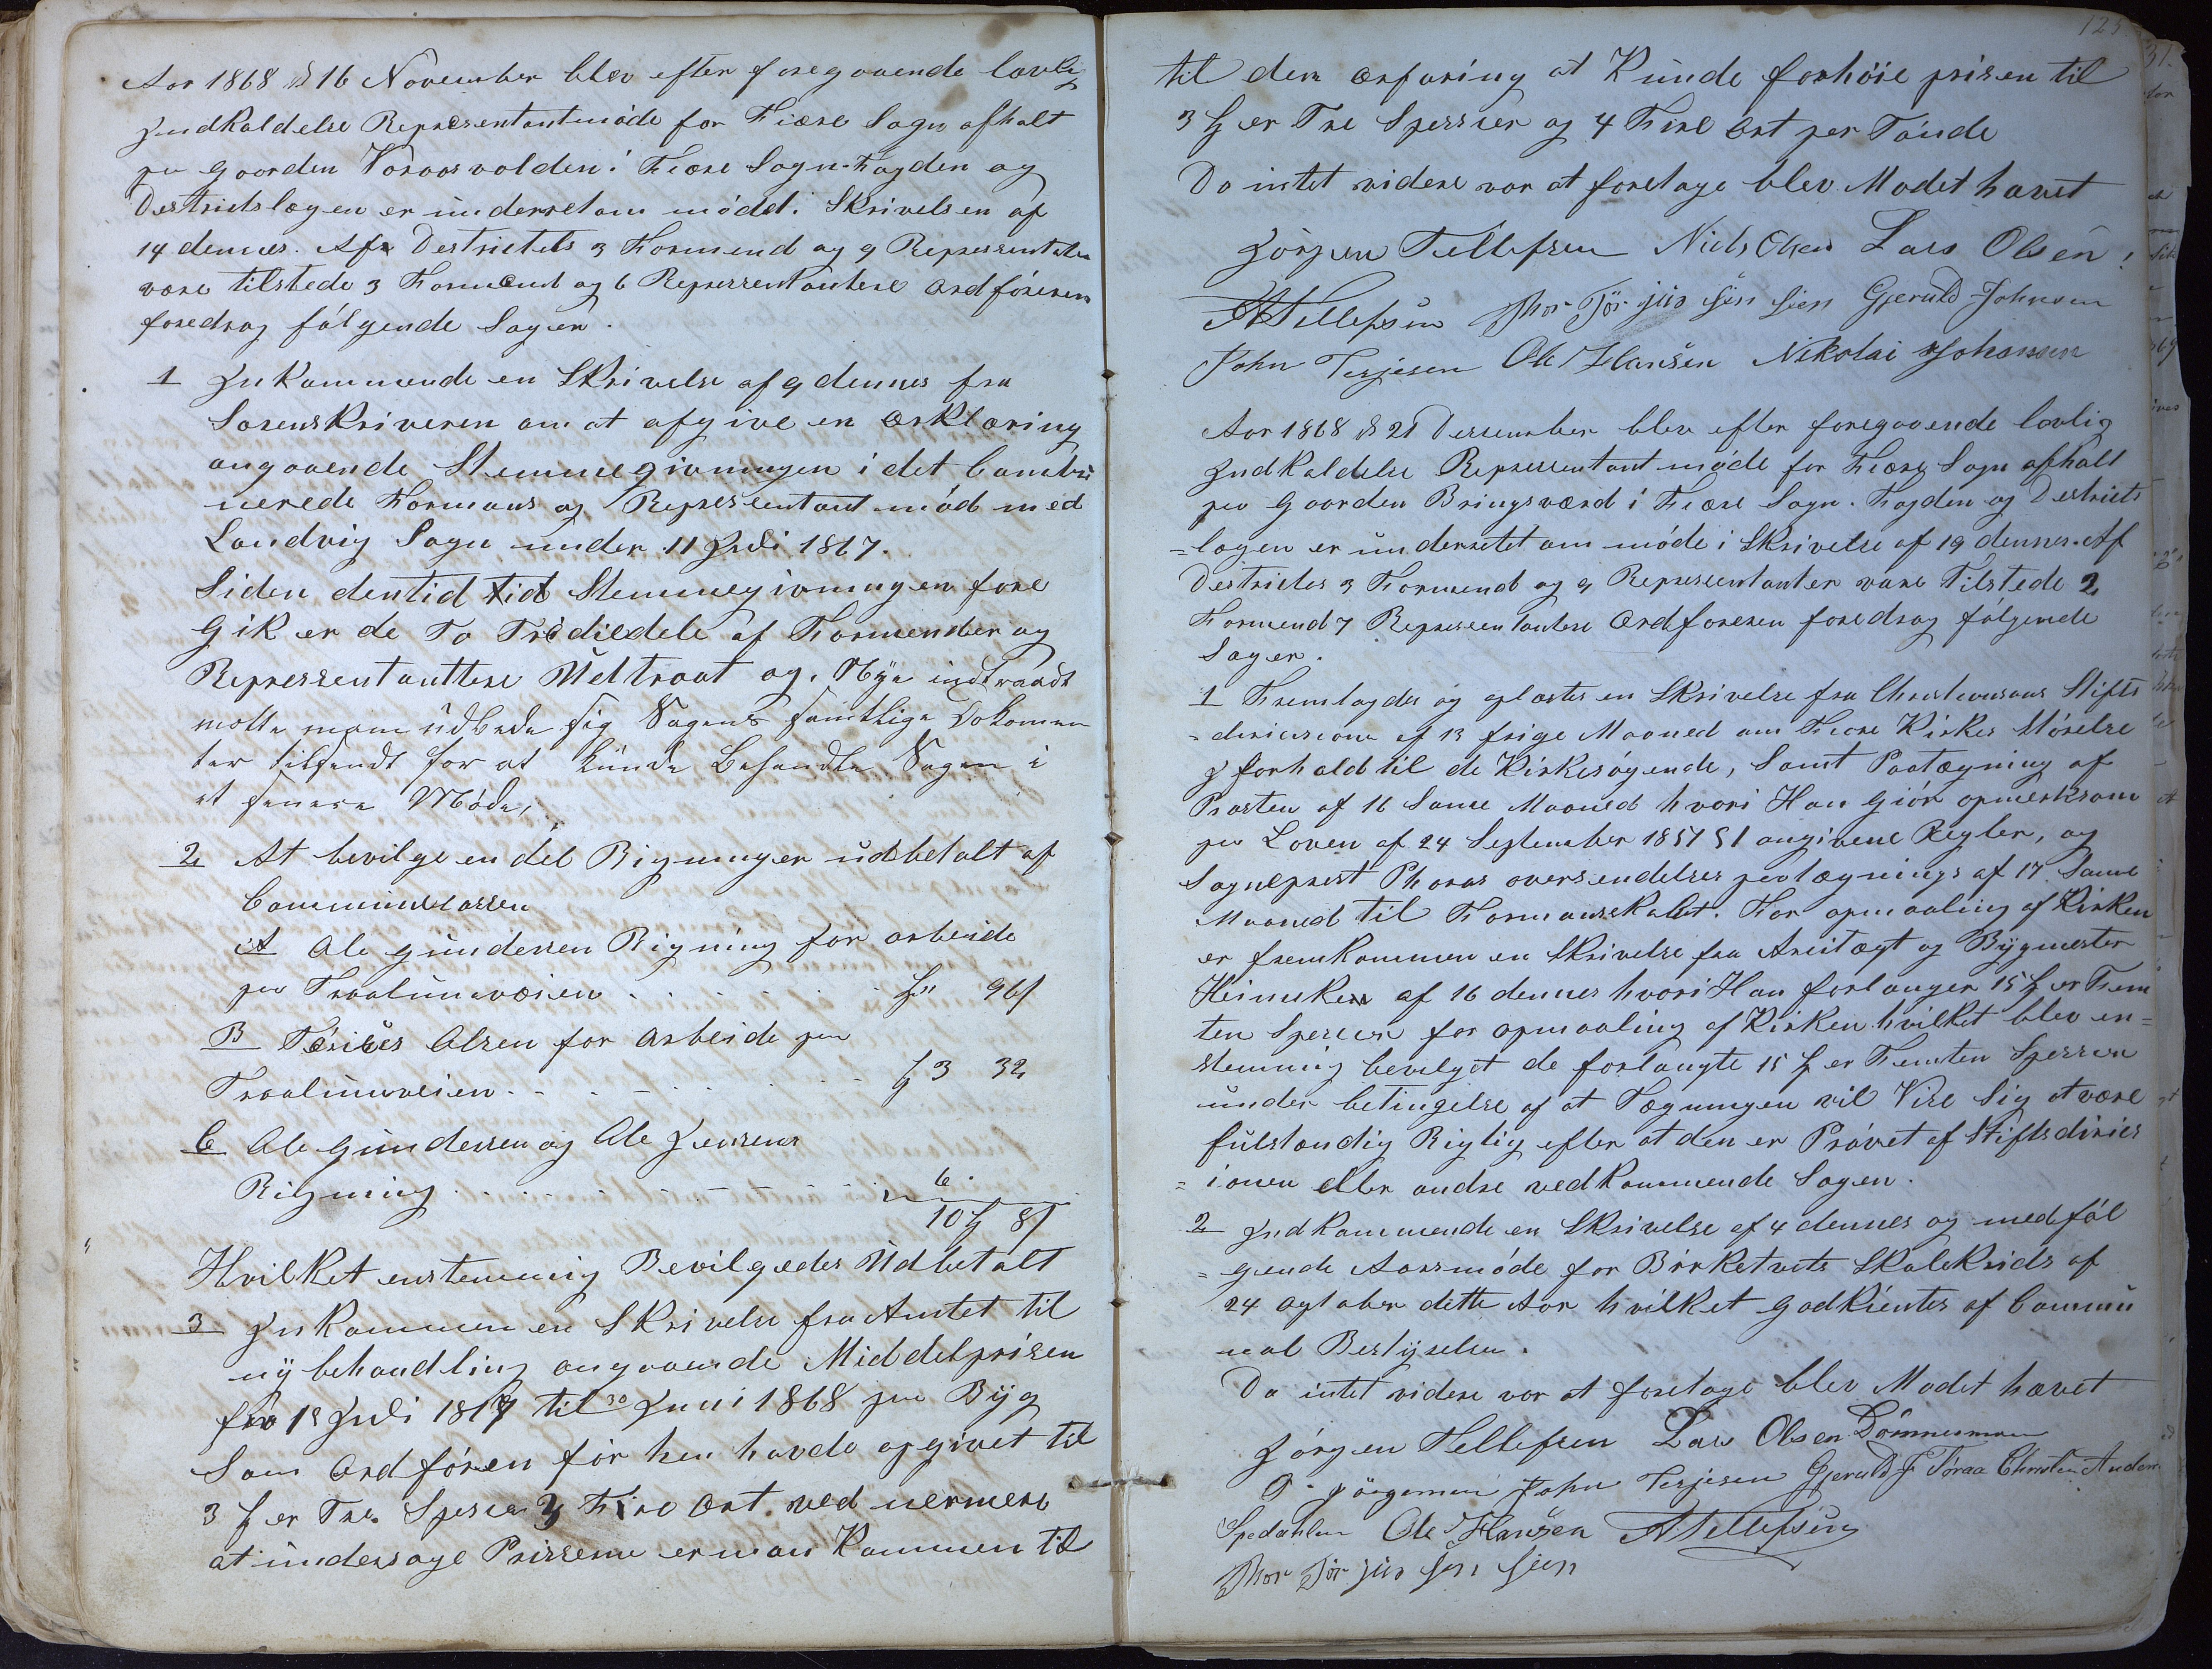 Aar 1868 d 16 November blev efter foregaaende lovlig
Jndkaldelse Representantmöde for Fiære Sogn afholt
pa Gaarden Voraasvolden i Fiære Sogn. Fogden og
Destrictslægen er underret om mödet i Skrivelsen af
14 dennes. Af Destrictets 3 Formend og 9 Representater
vare tilstede 3 Formend og 6 Representantere Ordföreren
foredrog fölgende Sager.
1 Jnkommende en Skrivelse af 9 dennes fra
Sorenskriveren om at afgive en Ærklæring
angaaende Stemmegivningen i det Combi
nerede Formans og Representant möd med
Landvig Sogn under 11 Juli 1867.
Siden dentid tid Stemmegivningen fore
Gik er de To Tredieedele af Formender og
Representanttere Udtraat og Nye indtraadt
motte man udbede sig Sagens samtlige Dokomen
ter tilsendt for at kunde Behandle Sagen i
et senere Möde,
2 At bevilge en del Rigninger udbetalt af
Communekassen
A Ole Gundersen Rigning for arbeide
pa Traalumveien . . . . . . " 96
B Terjes Olsen for Arbeide paa
Traalumveien . . . . . . 3 32
C Ole Gundersen og Ole Jensens
Rigning . . . . . . 6
10 8
Hvilket enstemmig Bevilgedes Udbetalt
3 Jnkommen en Skrivelse fra Amtet til
ny behandling angaaende Middelprisen
fra 1s Juli 1867 til 30 Juni 1868 paa Byg
Som Ordfören för hen havde opgivet til
3 er Tre Specier 3 Fire Ort. ved nermere
at undersøge Prissene er man Kommen til
125
til den ærfaring at Kunde forhöie prisen til
3 er Tre Spessier og 4 Fire Ort per Tönde
Da intet videre var at foretage blev Modet hævet
Jörgen Tellefsen Niels Olsen Lars Olsen
A Tellefsen Thor Jör jus sen Gjeruld Johnsen
John Terjesen Ole Hansen Nikolai Johansen
Aar 1868 d 21 Dessember blev efter foregaaende lovlig
Jndkaldelse Representantmöde for Fiære Sogn afholt
paa Gaarden Bringsværd i Fiære Sogn. Fogden og Destricts
=lægen er underretet om möde i Skrivelse af 19 dennes. Af
Destrictes 3 Formend og 9 Representanter vare Tilstede 2
Formend 7 Representantere Ordforeren foredrog fölgende
Sager.
1 Fremlagdes og oplæstes en Skrivelse fra Christiansans Stifts
=derictione af 13 frige Maaned om Fiære Kirkes Störelse
J forhold til de Kirkesögende, Samt Paategning af
Prosten af 16 Same Maaned hvori Han Giör opmerksom
paa Loven af 24 September 1851 §1 angivene Regler, og
Sognepræst Phoras oversendelses paatægnings af 17 Same
Maaned til Formanskabet. For opmaaling af Kirken
er fremkommen en Skrivelse fra Arcitægt og Bygmester
Heinuken af 16 dennes hvori Han forlanger 15 er Fem
ten Specier for opmaaling af Kirken hvilket blev en=
stemmig bevilget de forlangte 15 er Femten Spessier
under betingelse af at Tegningen vil Vise Sig at være
fulstændig Rigtig efter at den er Prövet af Stiftsdirics
=ionen eller andre vedkommende Sagen.
2 Jndkommende en Skrivelse af 4 dennes og medföl
=gende Aarsmöde for Birketvets Skolekrids af
24 Ogtober dette Aar hvilket godkientes af Commu
nal Bestyrelsen.
Da intet videre var at foretage blev Modet hævet
Jörgen Tellefsen Lars Olsen Dömmesmoen
O. Jörgensen John Terjesen Gjeruld J Töraa Christen Anders
Spedahlen Ole Hansen A Tellefsen
Thor Jör jus sen